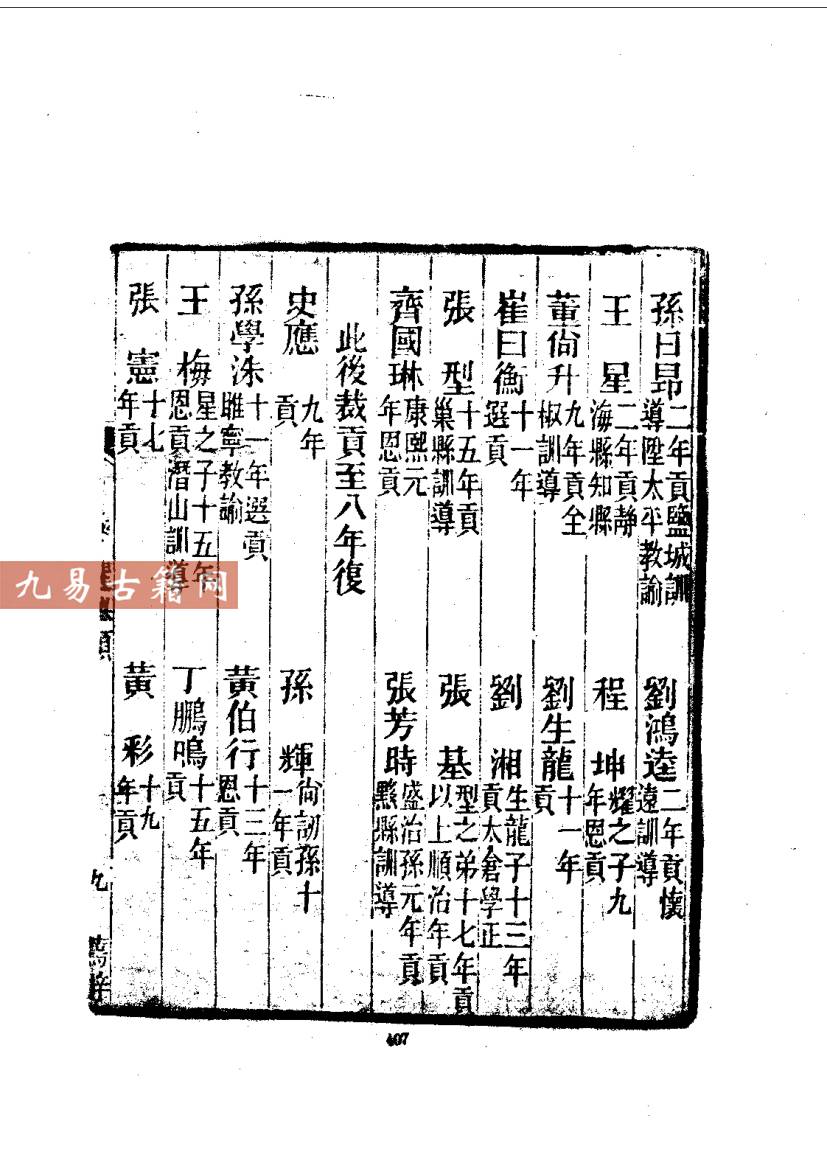 孫日昂 二年貢鹽城訓導陞太平教諭 劉鴻逵 二年貢懷遠訓導
王星 二年貢靜海縣知縣 程坤 耀之子九年恩貢
董尙升 九年貢全椒訓導 劉生龍 十一年貢
崔曰衡 十一年選貢 劉湘 生龍子十三年貢太倉學正
張型 十五年貢巢縣訓導 張基 型之弟十七年貢以上順治年貢
齊國琳 康熙元年恩貢 張芳時 盛治孫元年貢黟縣訓導
此後裁貢至八年復
史應 九年貢 孫輝 尙訒孫十一年貢
孫學洙 十一年選貢睢寧教諭 黃伯行 十三年恩貢
王梅 星之子十五年恩貢潛山訓導 丁鵬鳴 十五年貢
張憲 十七年貢 黃彩 十九年貢
九
407
九易古籍网